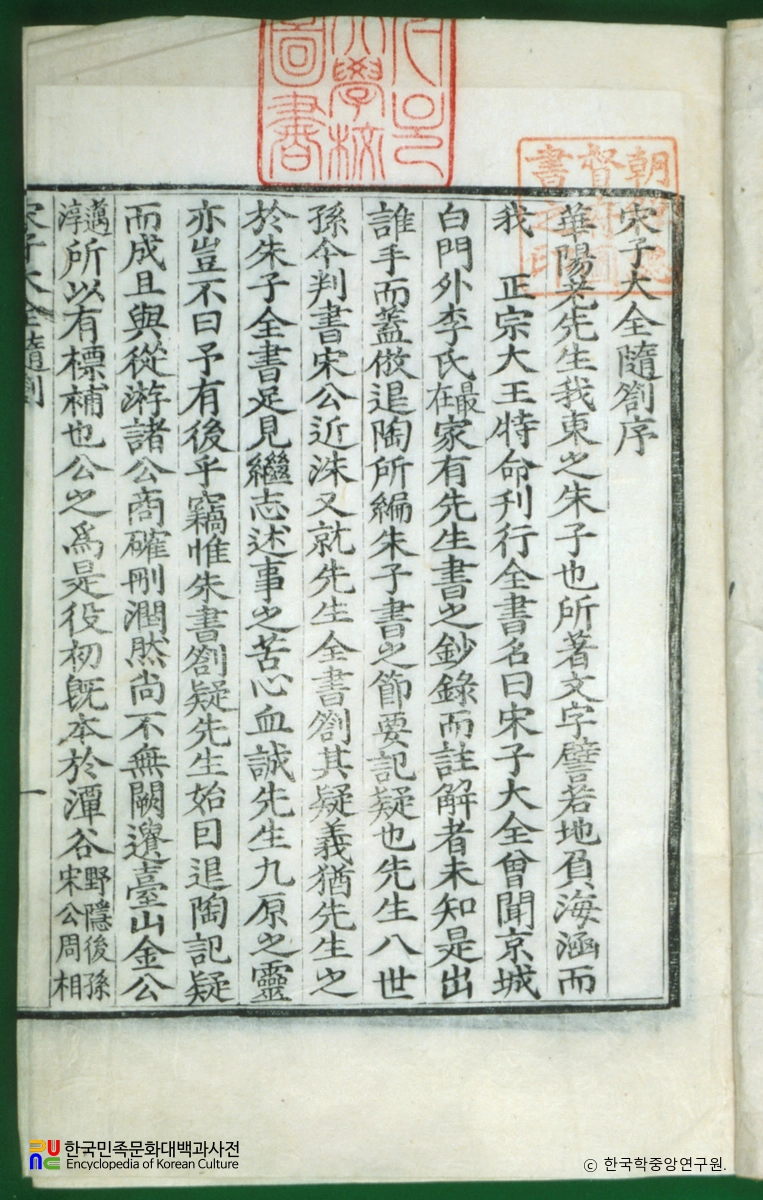 宋子大全隨箚序
華陽老先生我東之朱子也所著文字譬若地負海涵而
我 正宗大王特命刊行全書名曰宋子大全曾聞京城
白門外李氏最在家有先生書之鈔錄而註解者未知是出
誰手而蓋倣退陶所編朱子書之節要記疑也先生八世
孫今判書宋公近洙又就先生全書箚其疑義猶先生之
於朱子全書足見繼志述事之苦心血誠先生九原之靈
亦豈不曰予有後乎竊惟朱書箚疑先生始因退陶記疑
而成且與從游諸公商確刪潤然尚不無闕遺臺山金公
邁淳所以有標補也公之爲是役初旣本於潭谷野隱後孫宋公周相
宋子大全隨箚
一
圖書
大學校
書之印
한국민족문화대백과사전
Encyclopedia of Korean Culture
© 한국학중앙연구원.